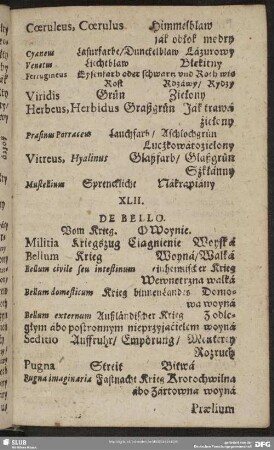 Cœruleus, Cœrulus. Himmelblaw
jak obłok modry
Cyaneus Lasurfarbe/Dunckelblaw Lázurowy
Venetus Liechtblaw Blekitny
Ferrugineus Eysenfarb oder schwartz und Roth wie
Rost Rdzáwy/ Rydzy
Viridis Grün Zielony
Herbeus, Herbidus Graßgrün Jak trawá
zielony
Prasinus Porraceus Lauchfarb/ Aschlochgrün
Luczkowátozielony
Vitreus, Hyalinus Glaßfarb/ Glaßgrün
Szklánny
Mustelinus Sprencklicht Nákrapiány
XLII.
DE BELLO.
Vom Krieg. O Woynie.
Militia Kriegszug Ciagnienie Woyská
Bellum Krieg Woyná/Walká
Bellum civile seu intestinum einheimischer Krieg
Wewnetrzna walká
Bellum domesticum Krieg binnenlandes Domo-
wa woyná
Bellum externum Außländischer Krieg Z odle-
głym ábo postronnym nieprzyiaćielem woyná
Seditio Auffruhr/ Empörung/ Meuterey
Rozruch
Pugna Streit Bitwá
Pugna imaginaria Fastnacht Krieg Krotochwilna
ábo Zártowna woyná
Prælium
SLUB